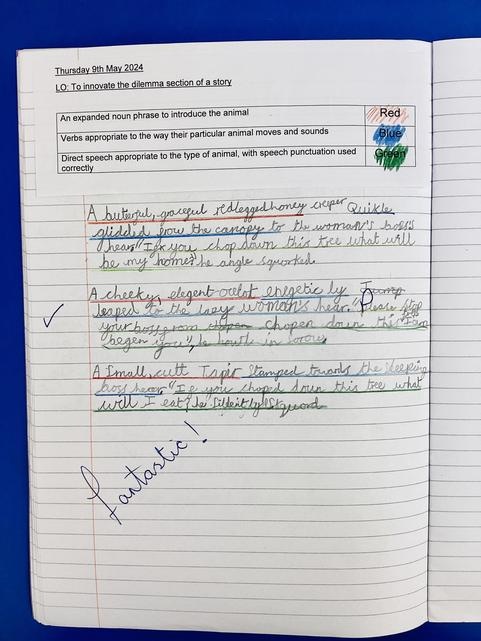 Thursday 9th May 2024
LO: To innovate the dilemma section of a story
An expanded noun phrase to introduce the animal Red
Verbs appropriate to the way their particular animal moves and sounds Blue
Direct speech appropriate to the type of animal, with speech punctuation used correctly Green
A buterful, graceful redlegged honey creper Quikle
glidid from the canopy to the woman's boss's
hear "If you chop down this tree what will
be my home?" he angle squorked.
A cheeky, elegent ocelot energetic ly Jump
leaped to the lazy woman's hear. "Please stop
your boss from chopen down this "I am
begen you", he howls in
A small, cutt Tapir stamped towards the sleeping
boss "If you choped down this tree what
will I eat? he
fantastic!